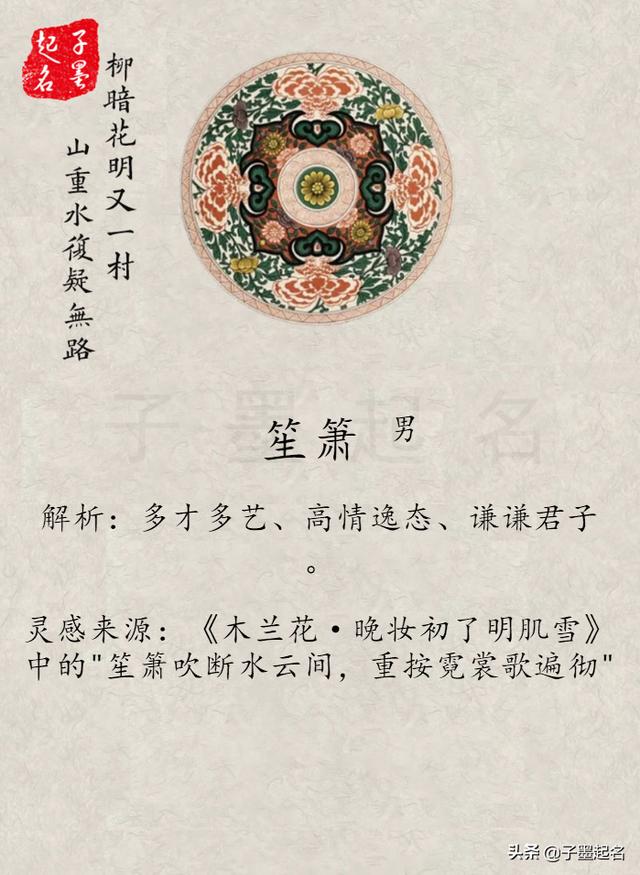 子墨
起名
柳暗花明又一村
山重水復疑無路
子墨起名
笙箫 男
解析：多才多艺、高情逸态、谦谦君子
。
灵感来源：《木兰花·晚妆初了明肌雪》
中的"笙箫吹断水云间，重按霓裳歌遍彻"
头条 @子墨起名